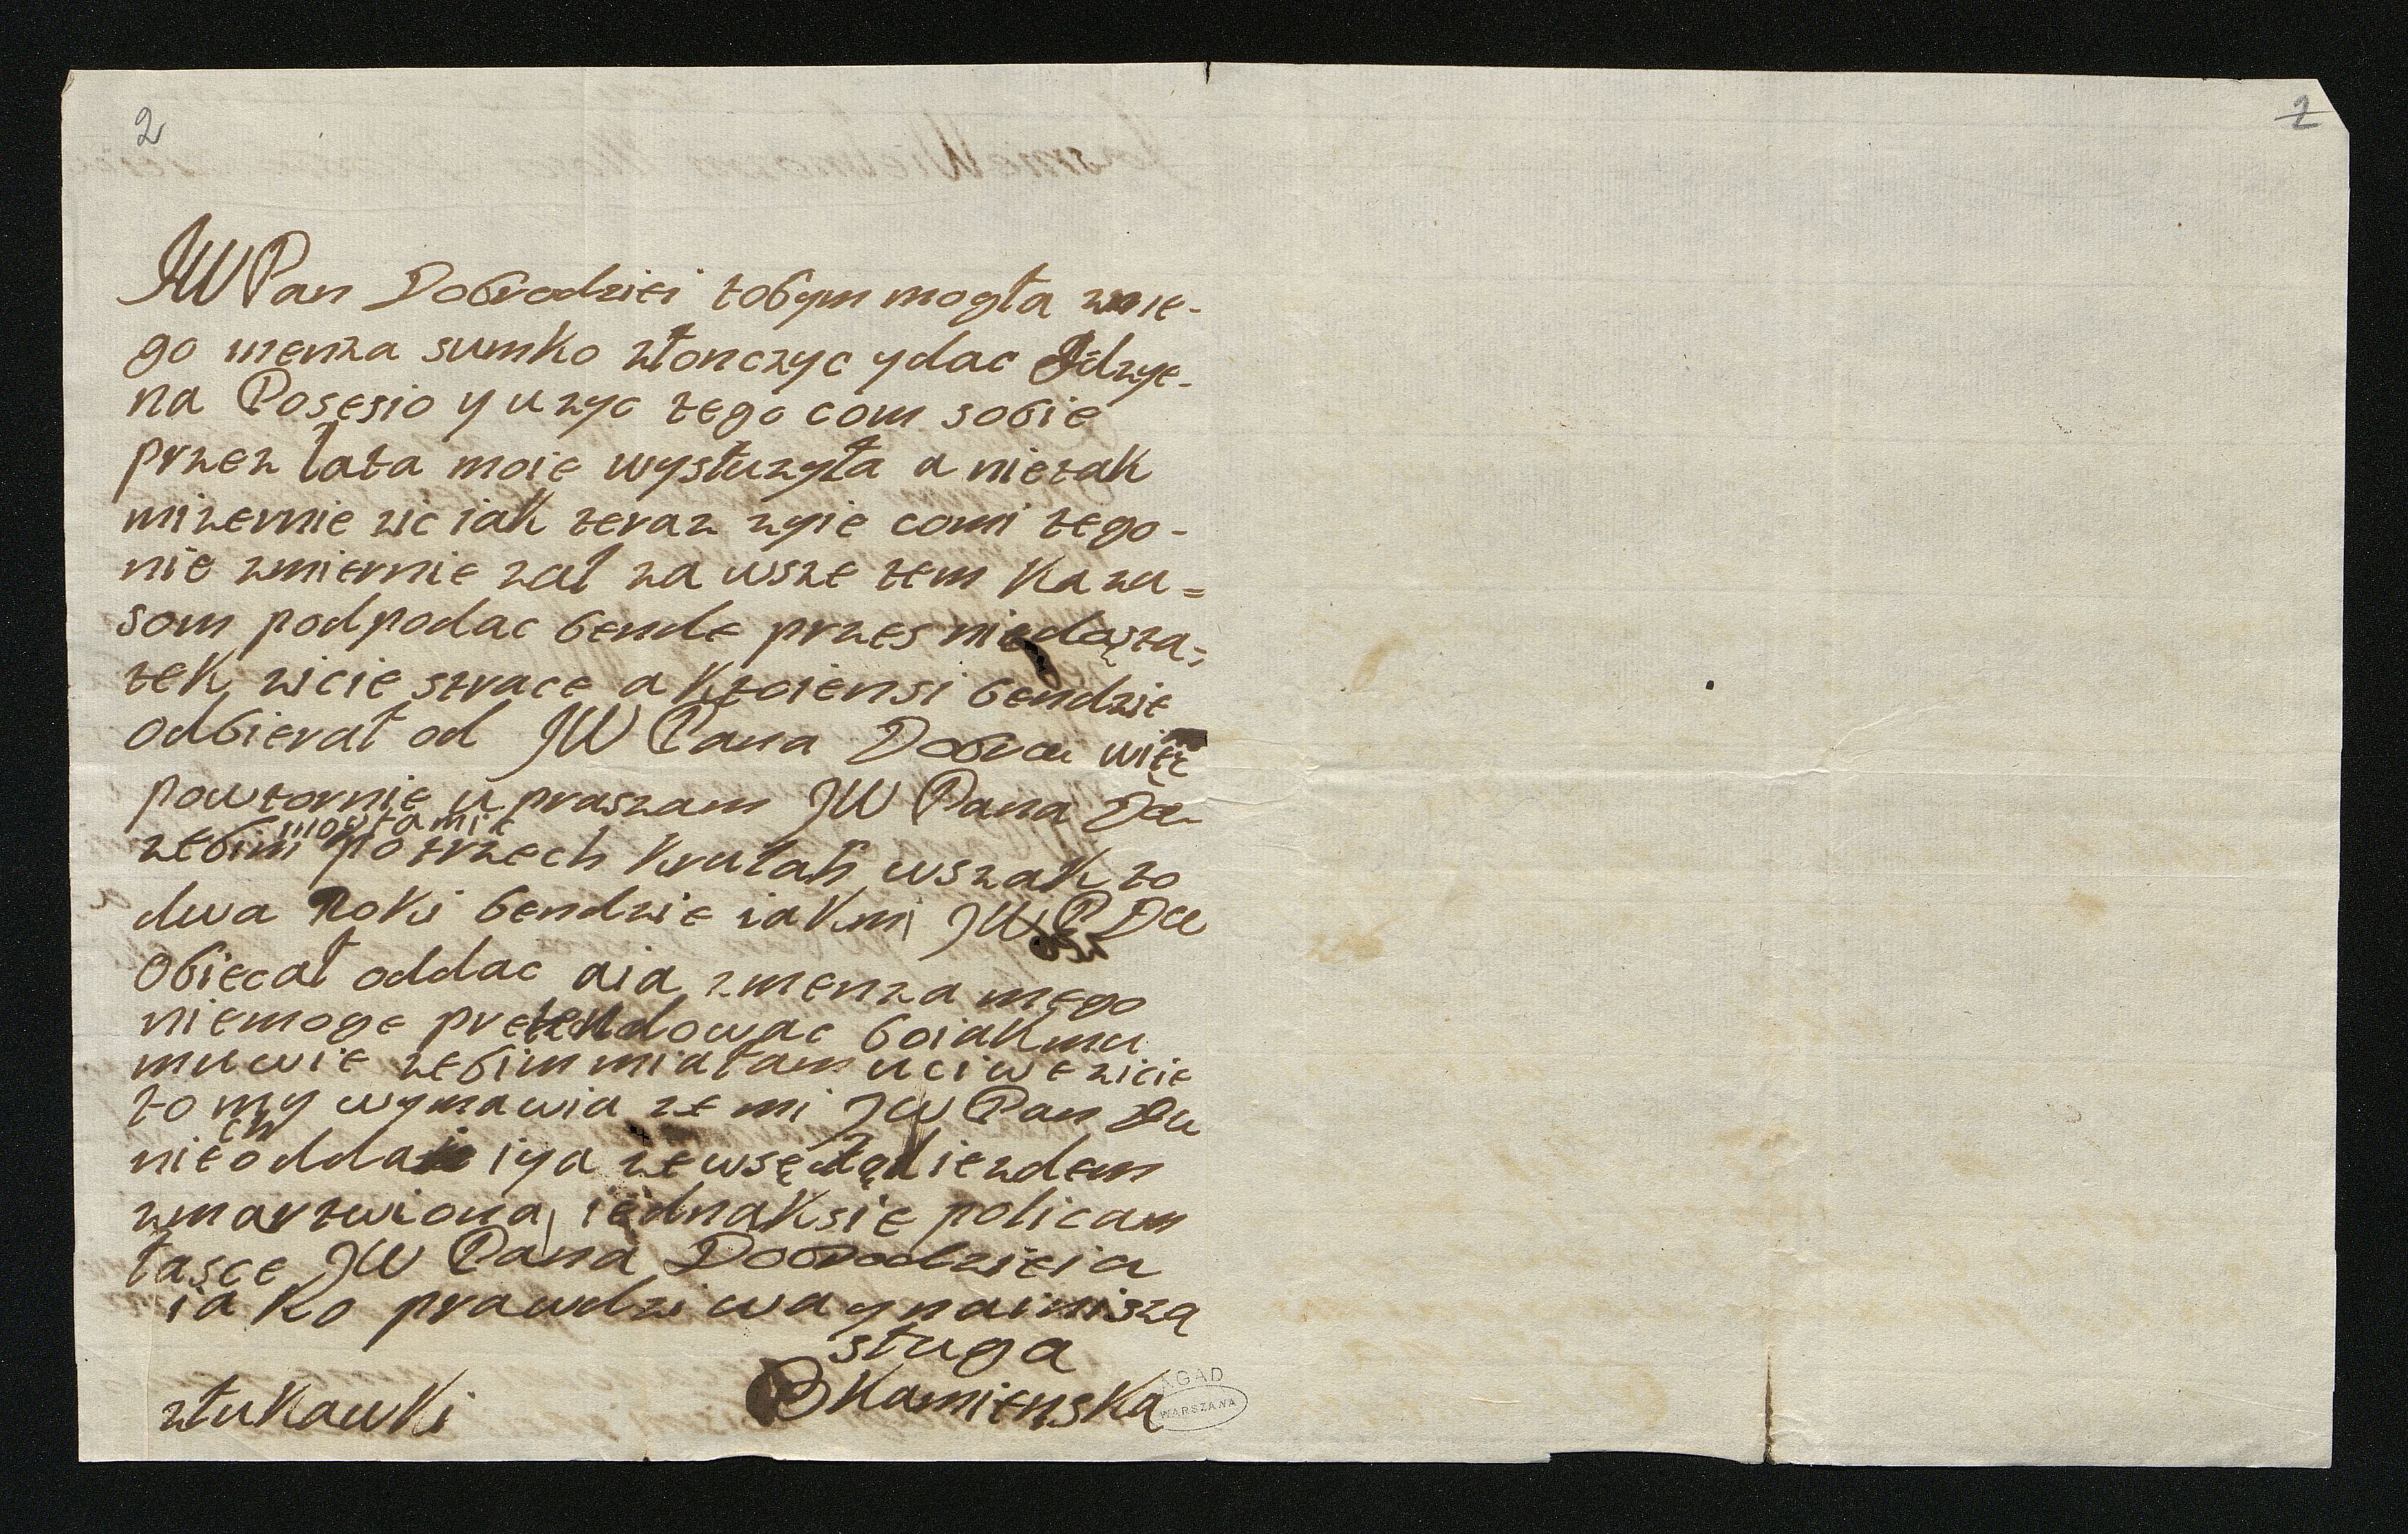 2
2
JW Pan Dobrodziei tobym mogła zmie-
go menza sumko złonczyc ydac Gdzye-
na Posesio y uzyc tego com sobie
przez lata moie wysłuzyła a nietak
mizernie zic iak teraz zyie comi tego-
nie zmiernie zal za wsze tem kazu=
som podpodac bende przes niedosta-
tek zicie strace a ktoiensi bendzie
odbierał od JW Pana Dobru więc
powtornie upraszam JW Pana Du
mogłamić
zebim potrzech krulah wszak to
dwa Roki bendzie iakmi JW P Du
Obiecał oddac aia zmenza mego
niemoge pretendowac boiakmu
muwie zebim miałam uciwe zicie
to my wymawia ze mi JW Pan Du
ch
nieodda iya zewsędąd iezdem
zmartwiona iednaksie policam
łasce JW Pana Dobrodzieia
iako prawdziwa ynainisza
sługa
B Kamienska
złukawki
AGAD
WARSZAWA